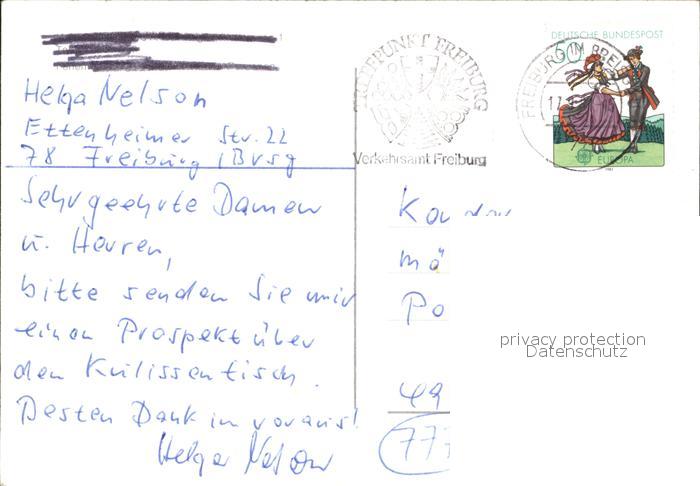 Helga Nelson
Ettenheimer Str. 22
78 Freiburg /Brsg
Sehr geehrte Damen
u. Herren,
bitte senden Sie mir
einen Prospekt über
den Kulissentisch.
Besten Dank im voraus!
Helga Nelson
TREFFPUNKT FREIBURG
Verkehrsamt Freiburg
FREIBURG IM BREI
DEUTSCHE BUNDESPOST
60
EUROPA
mä
Po
privacy protection
Datenschutz
49
777